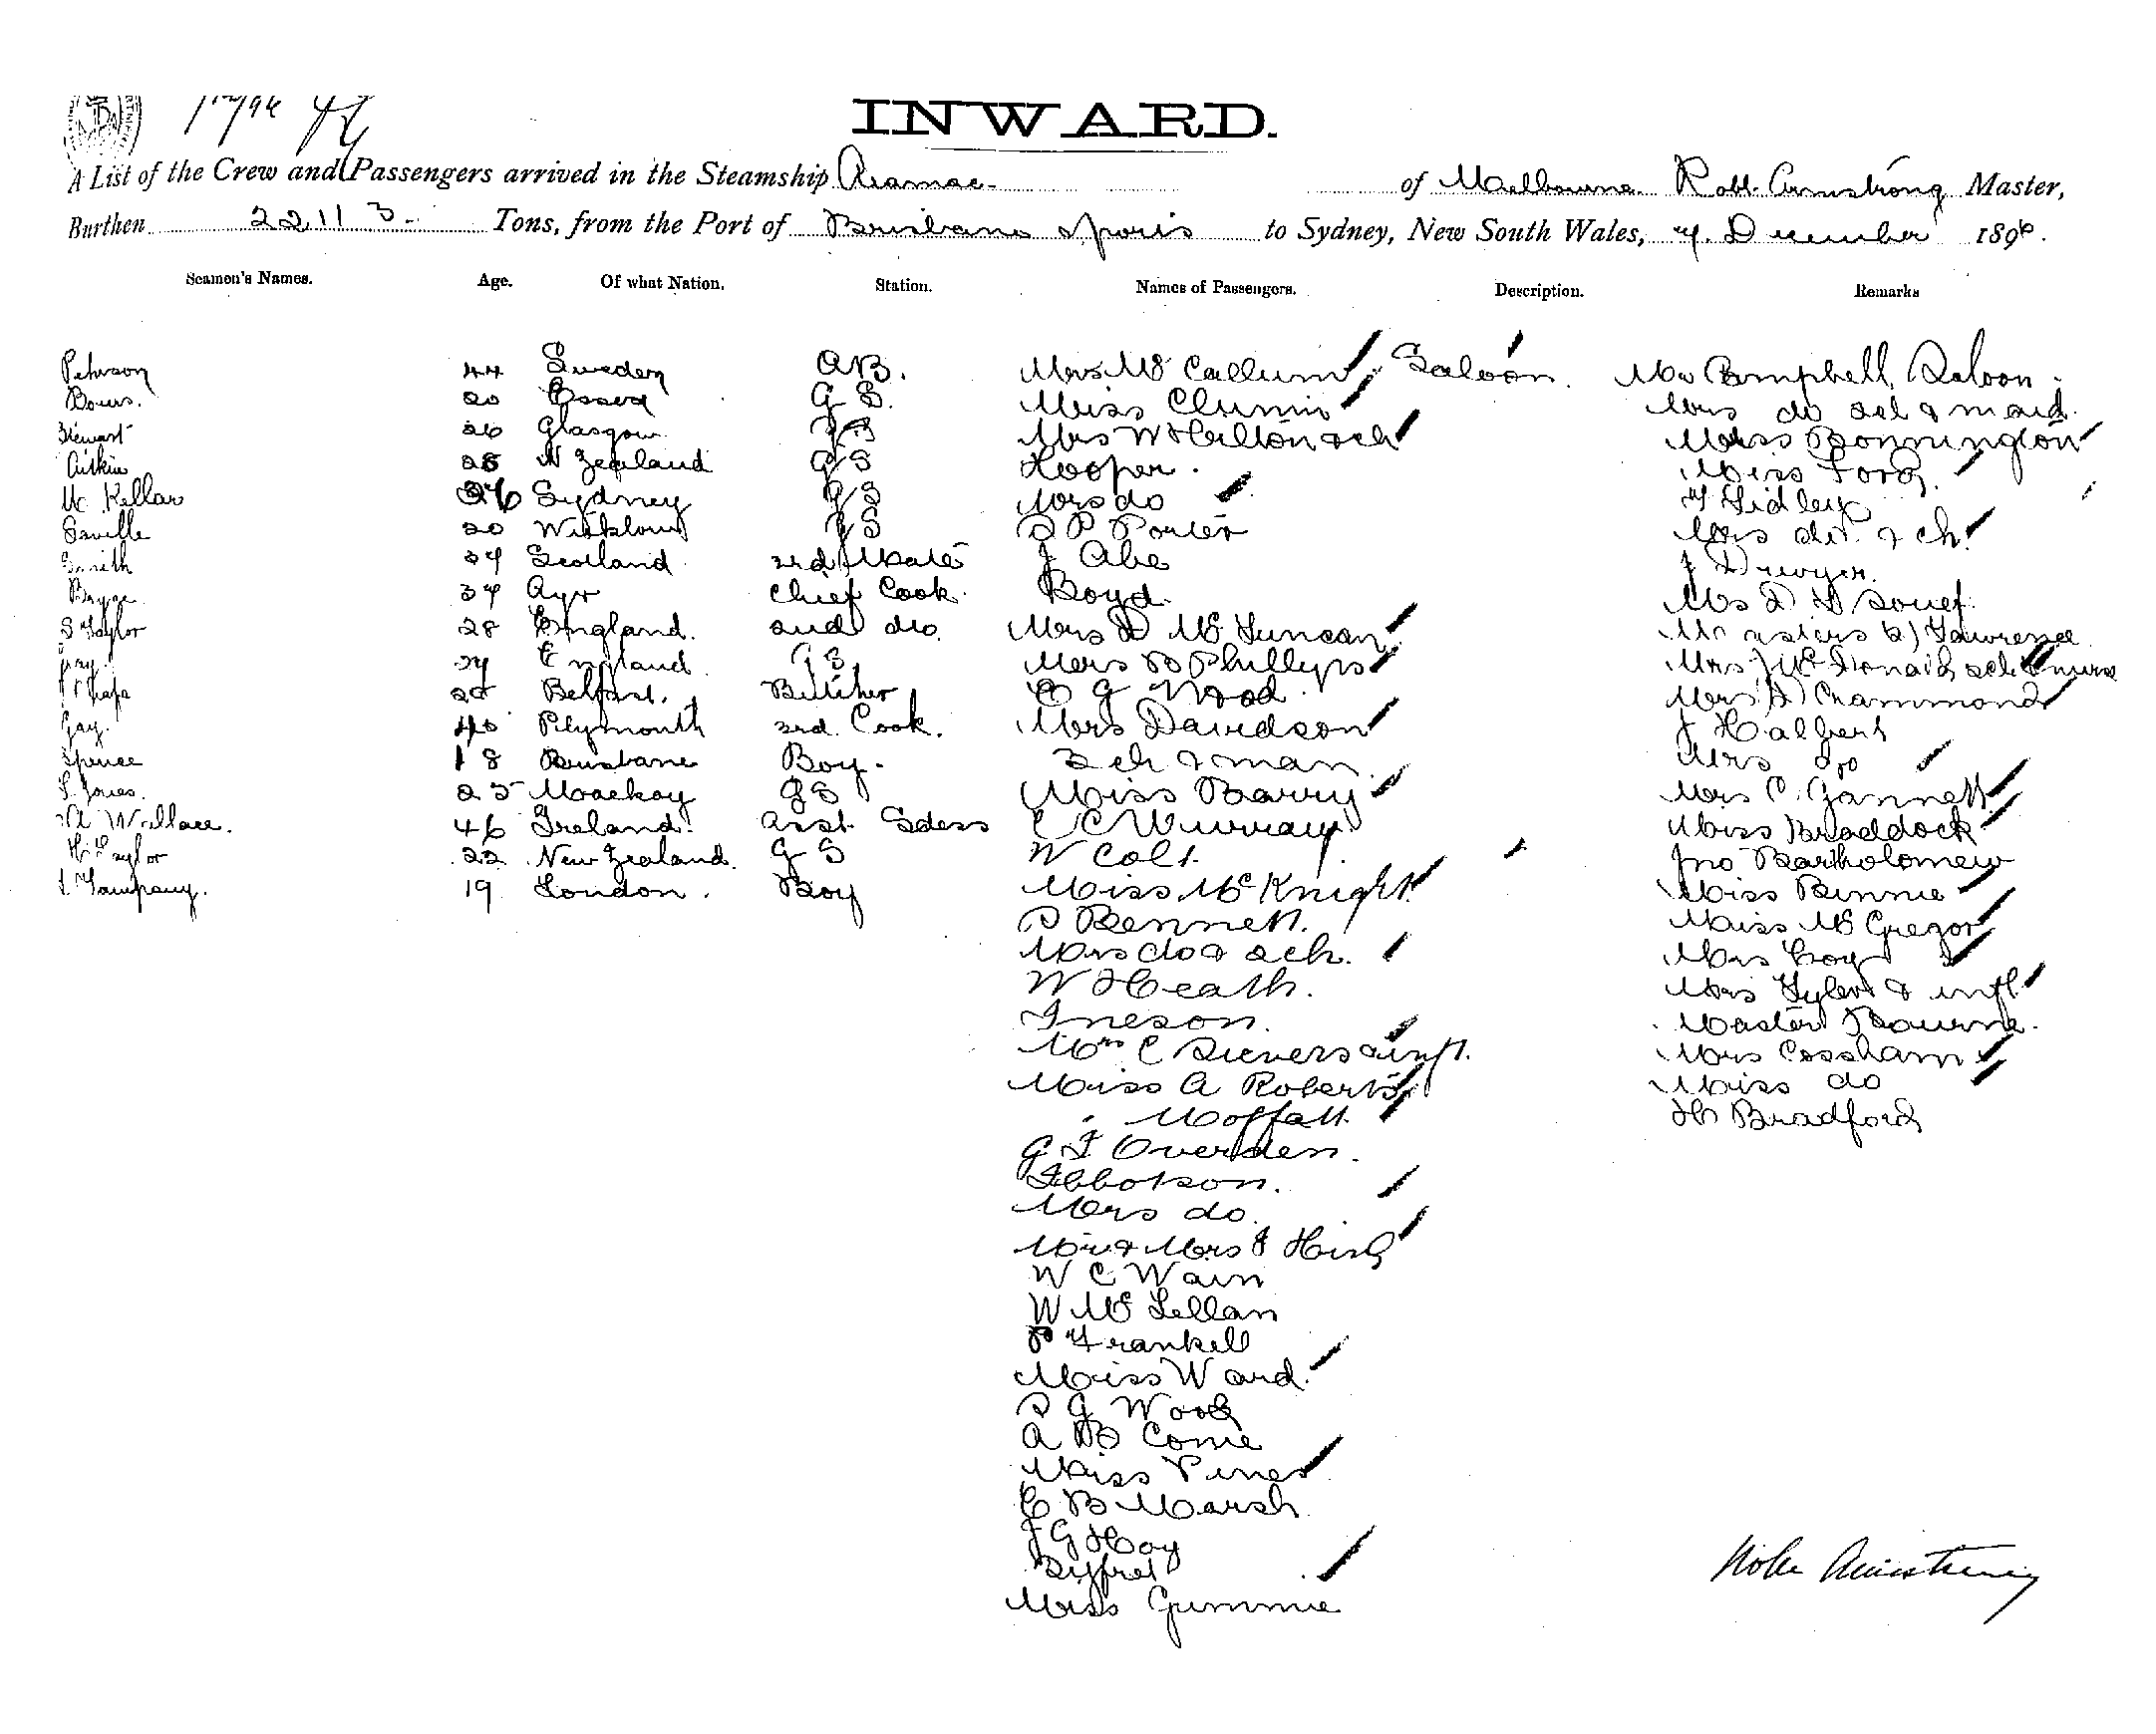 INWARD.
A List of the Crew and Passengers arrived in the Steamship Aramac of Melbourne Robt. Armstrong Master,
Burthen 2211 3 Tons, from the Port of Brisbane & ports to Sydney, New South Wales, 7. December 1896.
Seamen's Names. Age. Of what Nation. Station. Names of Passengers. Description. Remarks
Pehrson 44 Sweden A.B. Mrs Mc Callum Saloon. Mr Campbell Saloon
20 Essex G S. Miss Mrs do 2ch & maid
Stewart 26 Glasgow G S Mrs W Hilton 2ch Miss Bonnington
Aitkin 28 N Zealand G S Hooper. Miss Ford.
Mc Kellar 26 Sydney G S Mrs do Fidley
Saville 20 Wicklow G S D P Porter Mrs do. & ch.
Smith 24 Scotland 3rd Mate J Abe J Drwyer.
37 Ayr Chief Cook Boyd. Mrs D
S Taylor 28 England. 2nd do. Mrs D Mc Luncan Lawrence
24 England G S. Mrs B Phillips Mrs J Mc Donald 2ch & nurse
25 Belfast. Butcher E G Wood. Mrs D Crammond
Gay. 40 Plymouth 3rd. Cook. Mrs Davidson J Halbert
Spence 18 Brisbane Boy. 3 ch & man. Mrs do
Jones. 25 Mackay G S Miss Barry Mrs C. Gannett
Wallace. 46 Ireland. Asst. Stdess C C Murray Miss Braddock
H Taylor 22 New Zealand. G S W Colt. Jno Bartholomew
Tampany. 19 London. Boy Miss Mc Knight Miss Binnie
D Bennett. Miss Mc Gregor
Mrs do & 2ch. Mrs Coy
W Heath. Mrs Tyler & inft.
Ineson. Master Bourne.
Mrs C Sievers & inft. Mrs Cossham
Miss A Roberts Miss do
" Moffatt. H Bradford
G F Overden.
Ibbotson.
Mrs do.
Mr & Mrs J Hirst
W C Wain
W Mc Lellan
P Frankell
Miss Ward.
D G Wood
A B Corrie
Miss Pines
C B Marsh
J G Hay
Miss Gummie
Robt Armstrong